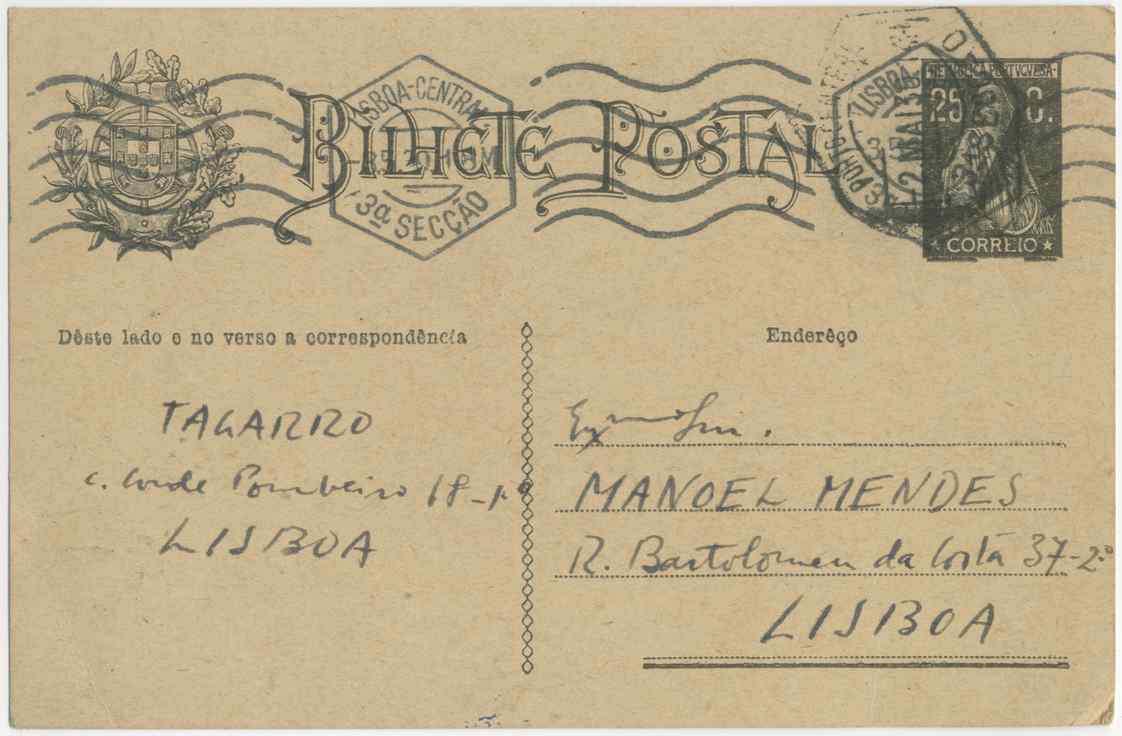 BILHETE POSTAL
LISBOA-CENTRAL
3ª SECÇÃO
LISBOA
REPUBLICA PORTUGUESA
25 C.
CORREIO
Dêste lado e no verso a correspondência
Enderêço
TAGARRO
c. Conde Pombeiro 18-1º
LISBOA
Exmo Snr.
MANOEL MENDES
R. Bartolomeu da Costa 37-2º
LISBOA